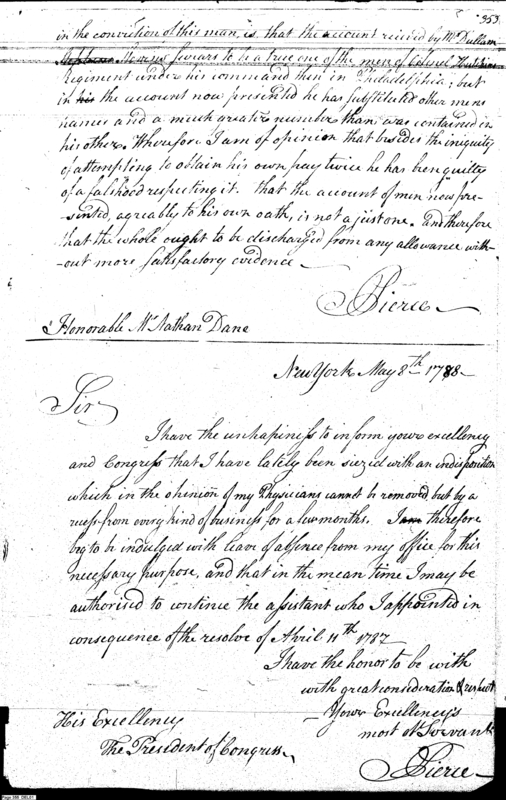 353
in the conviction of this man, is that the account recieved by Mr Dullam
Stephens Menzies swears to be a true one of the men of Colonel
Regiment under his command then in Philadelphia; but
in his the account now presented he has substituted other mens
names and a much greater number than was contained in
his other. Wherefore I am of opinion that besides the iniquity
of attempting to obtain his own pay twice he has been guilty
of a falshood respecting it. that the account of men now pre-
sented, agreably to his own oath, is not a just one. and therefore
that the whole ought to be discharged from any allowance with-
-out more satisfactory evidence—
Pierce
Honorable Mr Nathan Dane
New York May 8th 1788-
Sir
I have the unhapiness to inform your excellency
and Congress that I have lately been siezed with an indisposition
which in the opinion of my Physicians cannot be removed but by a
recess from every kind of business for a few months. I am therefore
beg to be indulged with leave of absence from my office for this
necessary purpose, and that in the mean time I may be
authorised to continue the assistant who I appointed in
consequence of the resolve of April 11th 1787
I have the honor to be with
with great consideration & respect
Your Excellency's
most Ob Servant
Pierce
His Excellency
The President of Congress